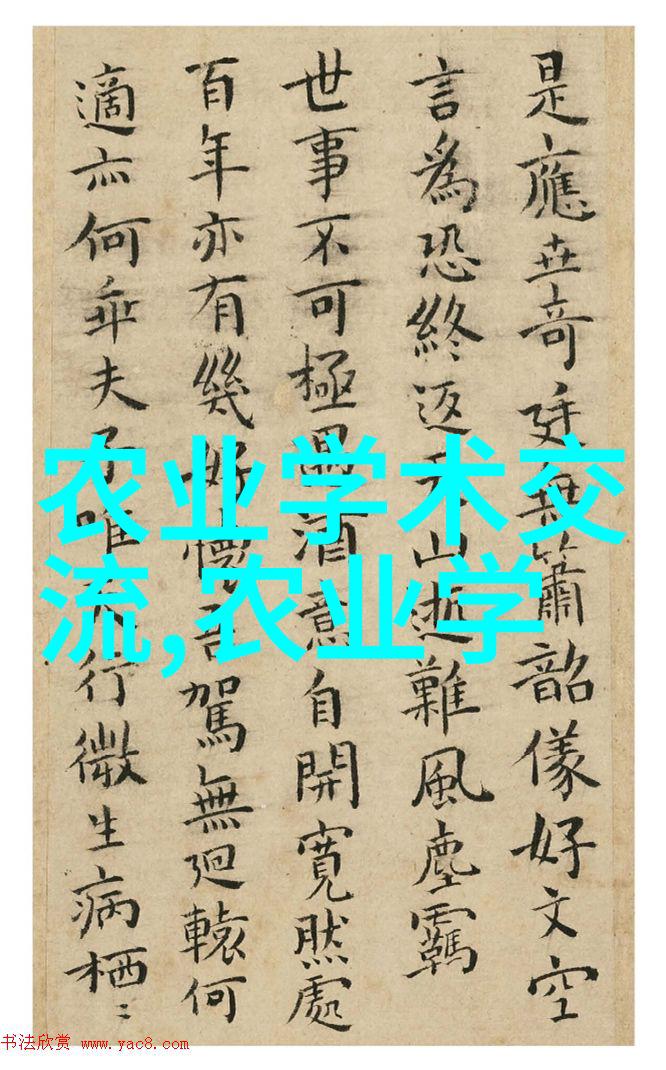 是應世奇廷無簫韶儀好文空
言爲恐終返山逝難風塵羈
世事不可極酒意自開寬然處
百年亦有幾好懷吾駕無迴轅何
適亦何乖夫子唯行微生病栖〻
农业学术交
流,农业学
书法欣赏 www.yac8.com